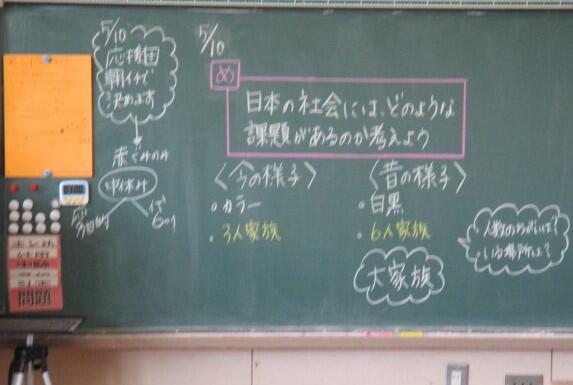 5/10
応援団
朝イチで
決めます
赤ぐみのみ
中休み
5/10
め
日本の社会には、どのような
課題があるのか考えよう
〈今の様子〉
。カラー
。3人家族
〈昔の様子〉
。白黒
。6人家族
大家族
人数のちがいは?
いる場所は?
まとめ
結果
実験
予想
計画
問題